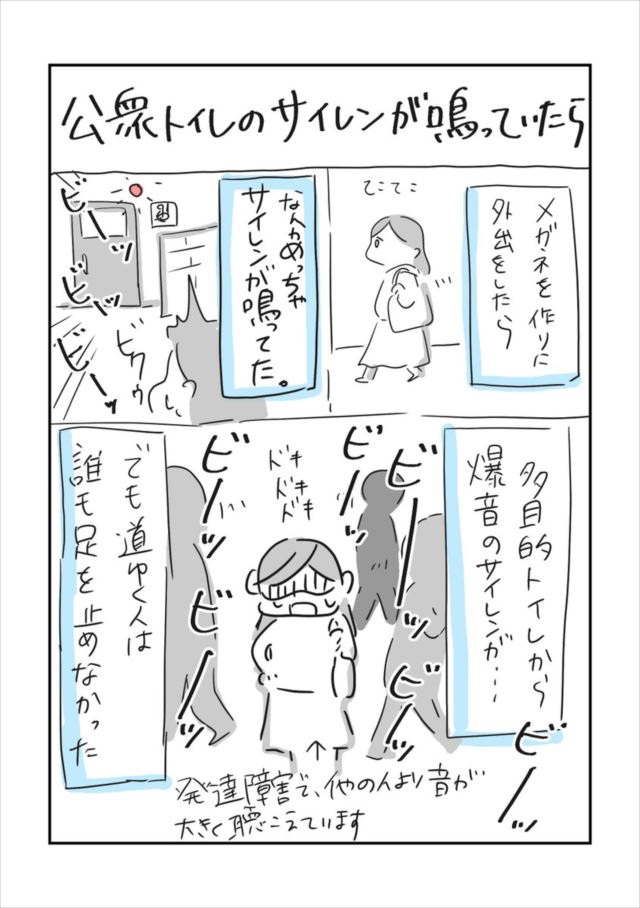 公衆トイレのサイレンが鳴っていたら
メガネを作りに
外出をしたら
てこてこ
なんかめっちゃ
サイレンが鳴ってた。
ビーッ
ビーッ
ビーッ
ビクゥ
多目的トイレから
爆音のサイレンが…
ビーッ
ビーッ
ビーッ
ビーッ
ビーッ
ビーッ
ドキ
ドキ
ドキ
でも道ゆく人は
誰も足を止めなかった
↑
発達障害で、他の人より音が
大きく聴こえています